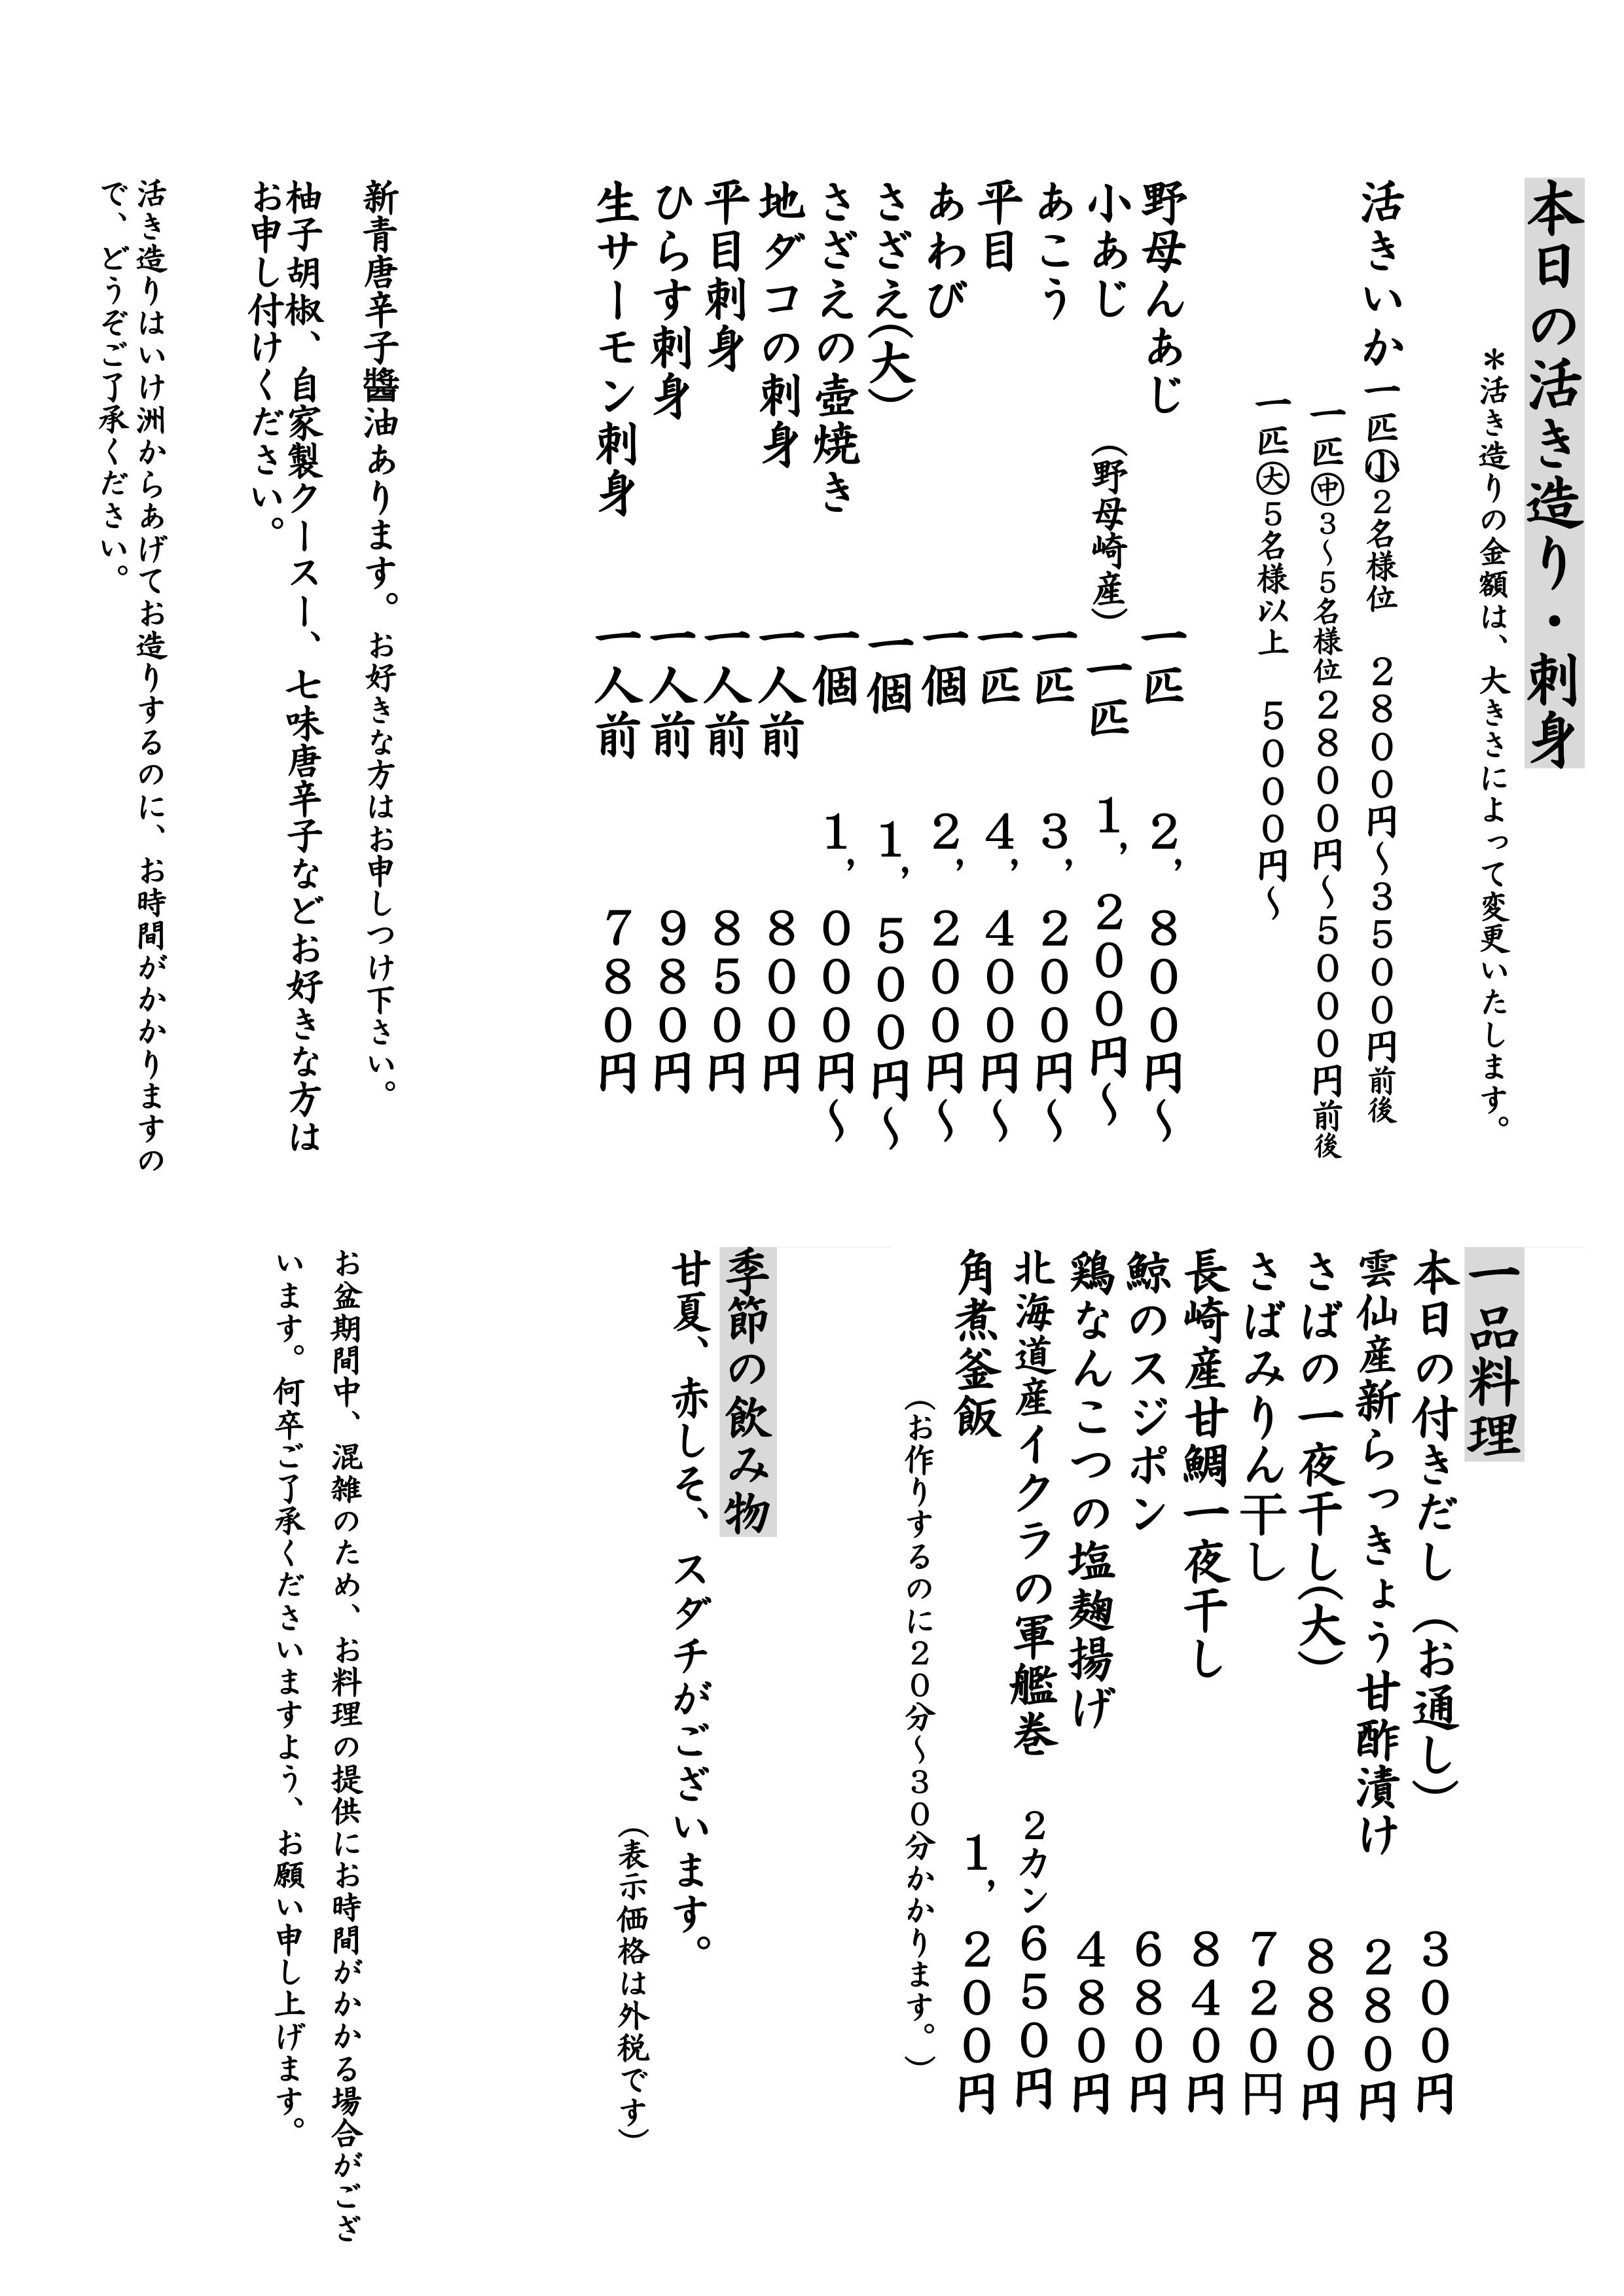 本日の活き造り・刺身
＊活き造りの金額は、大きさによって変更いたします。
活きいか一匹㊙小２名様位　２８００円～３５００円前後
一匹㊥３～５名様位２８００円～５０００円前後
一匹大５名様以上　５０００円～
野母んあじ　一匹　２，８００円～
小あじ　（野母崎産）　一匹　１，２００円～
あこう　一匹　３，２００円～
平目　一匹　４，４００円～
あわび　一個　２，２００円～
さざえ（大）　一個　１，５００円～
さざえの壺焼き　一個　１，０００円～
地ダコの刺身　一人前　８００円
平目刺身　一人前　８５０円
ひらす刺身　一人前　９８０円
生サーモン刺身　一人前　７８０円
新青唐辛子醬油あります。お好きな方はお申しつけ下さい。
柚子胡椒、自家製クースー、七味唐辛子などお好きな方は
お申し付けください。
活き造りはいけ洲からあげてお造りするのに、お時間がかかりますの
で、どうぞご了承ください。
一品料理
本日の付きだし（お通し）　３００円
雲仙産新らっきょう甘酢漬け　２８０円
さばの一夜干し（大）　８８０円
さばみりん干し　７２０円
長崎産甘鯛一夜干し　８４０円
鯨のスジポン　６８０円
鶏なんこつの塩麹揚げ　４８０円
北海道産イクラの軍艦巻　２カン６５０円
角煮釜飯　１，２００円
（お作りするのに２０分～３０分かかります。）
季節の飲み物
甘夏、赤しそ、スダチがございます。
（表示価格は外税です）
お盆期間中、混雑のため、お料理の提供にお時間がかかる場合がござ
います。何卒ご了承くださいますよう、お願い申し上げます。